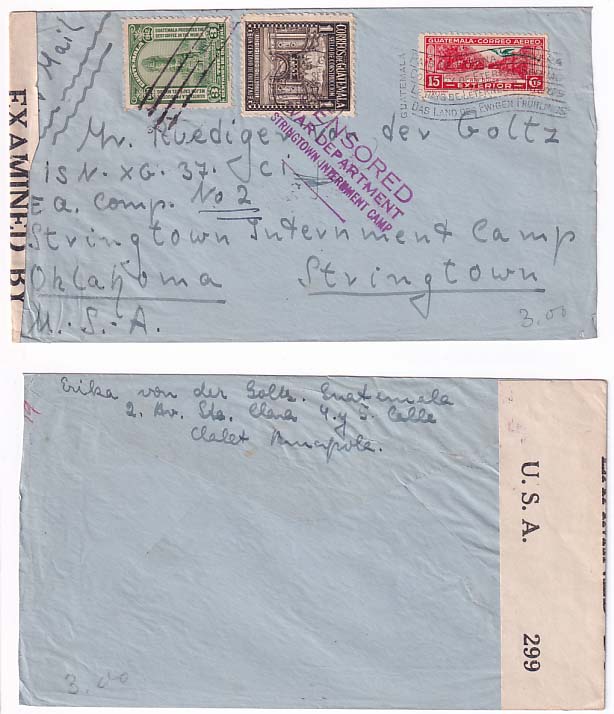 Air Mail
EXAMINED BY
GUATEMALA PRODUCES THE
BEST COFFEE IN THE WORLD
CORREOS DE GUATEMALA
GUATEMALA-CORREO AEREO
15 EXTERIOR Cts
GUATEMALA
DAS LAND DES EWIGEN FRÜHLINGS
CENSORED
WAR DEPARTMENT
STRINGTOWN INTERNMENT CAMP
Mr. Ruediger v. d. der Goltz
ISN. XG. 37. JCI
Ea. Comp. No 2
Stringtown Internment Camp
Oklahoma Stringtown
U.S.A.
3.00
Erika von der Goltz. Guatemala
2. Av. Sta. Clara 4. y 5. Calle
Chalet Amapola.
U.S.A. 299
3.00